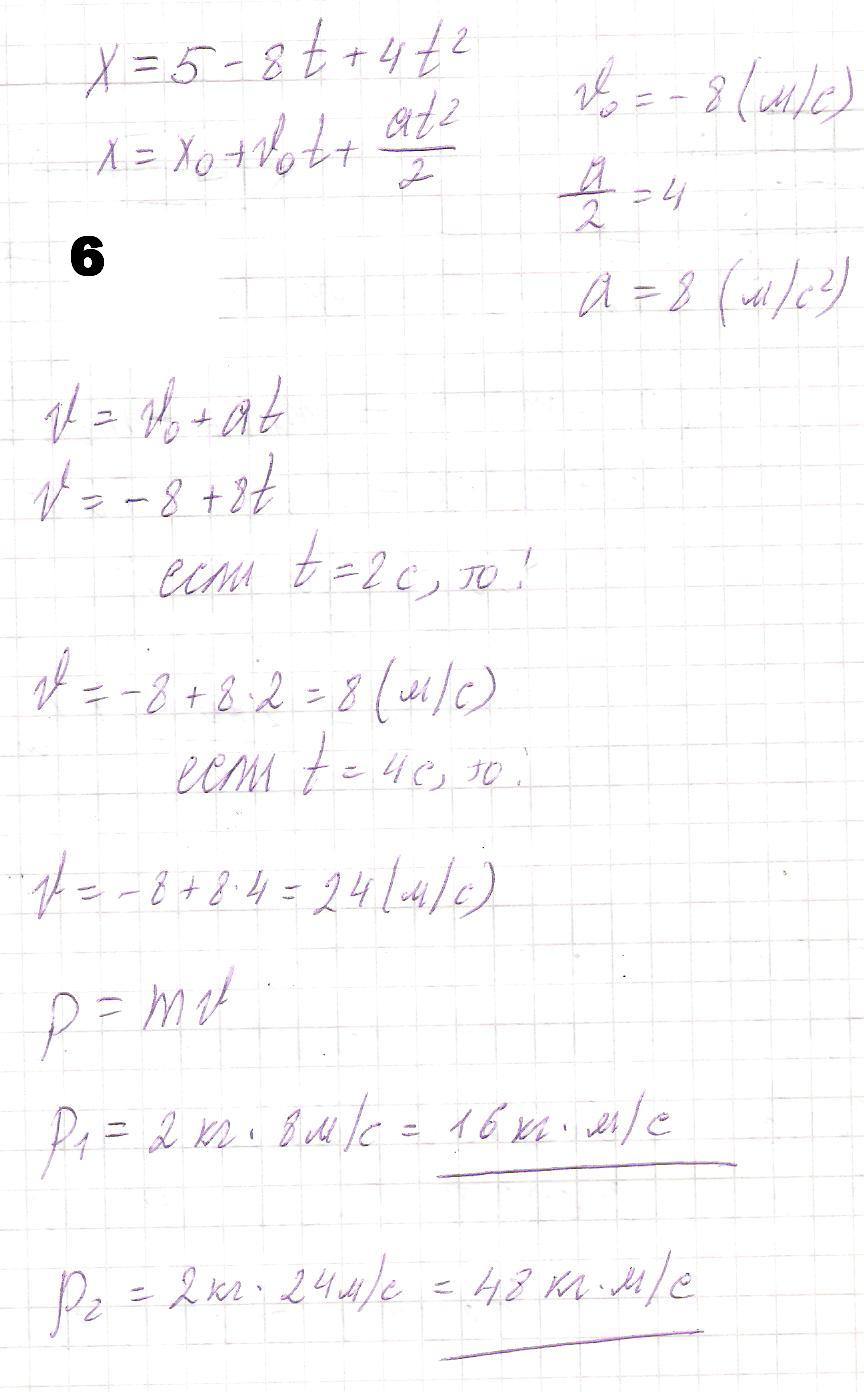 x = 5 - 8t + 4t²
x = x₀ + v₀t + at²/2
v₀ = - 8 (м/с)
a/2 = 4
a = 8 (м/с²)
6
v = v₀ + at
v = - 8 + 8t
если t = 2с, то:
v = -8 + 8·2 = 8 (м/с)
если t = 4с, то:
v = -8 + 8·4 = 24 (м/с)
p = mv
p₁ = 2 кг · 8 м/с = 16 кг · м/с
p₂ = 2 кг · 24 м/с = 48 кг · м/с